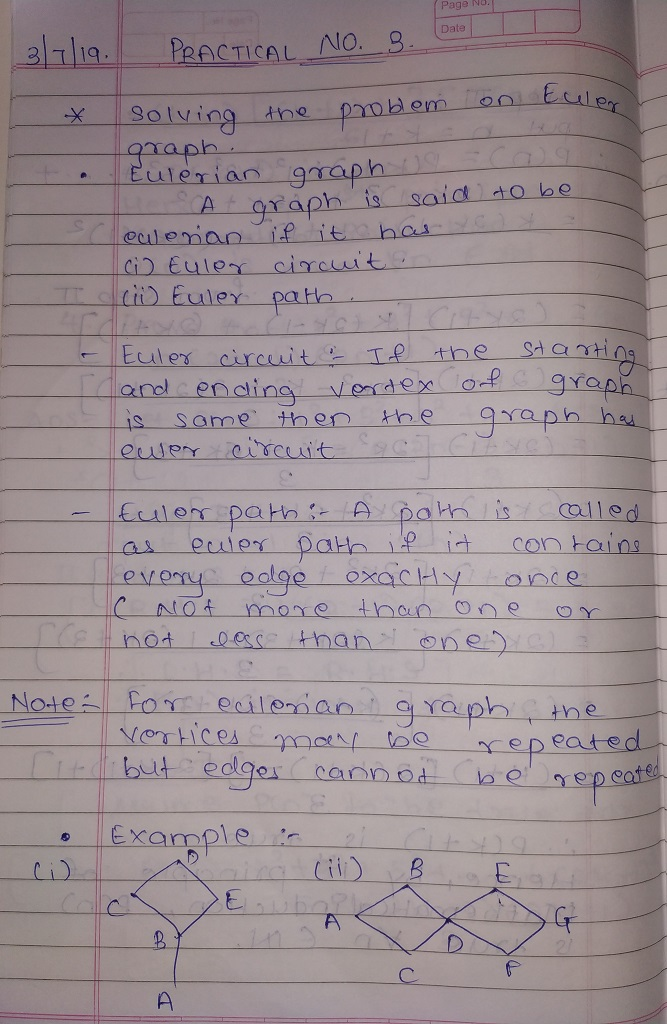 Page No.
Date
3/7/19. PRACTICAL NO. 3.
* Solving the problem on Euler
graph.
• Eulerian graph
A graph is said to be
eulerian if it has
(i) Euler circuit.
(ii) Euler path.
- Euler circuit :- If the starting
and ending vertex of graph
is same then the graph has
euler circuit
- Euler path :- A path is called
as euler path if it contains
every edge exactly once
( Not more than one or
not less than one)
Note :- For eulerian graph, the
vertices may be repeated
but edges cannot be repeated
• Example :-
(i) D (iii) B E
C E A G
B D
C F
A